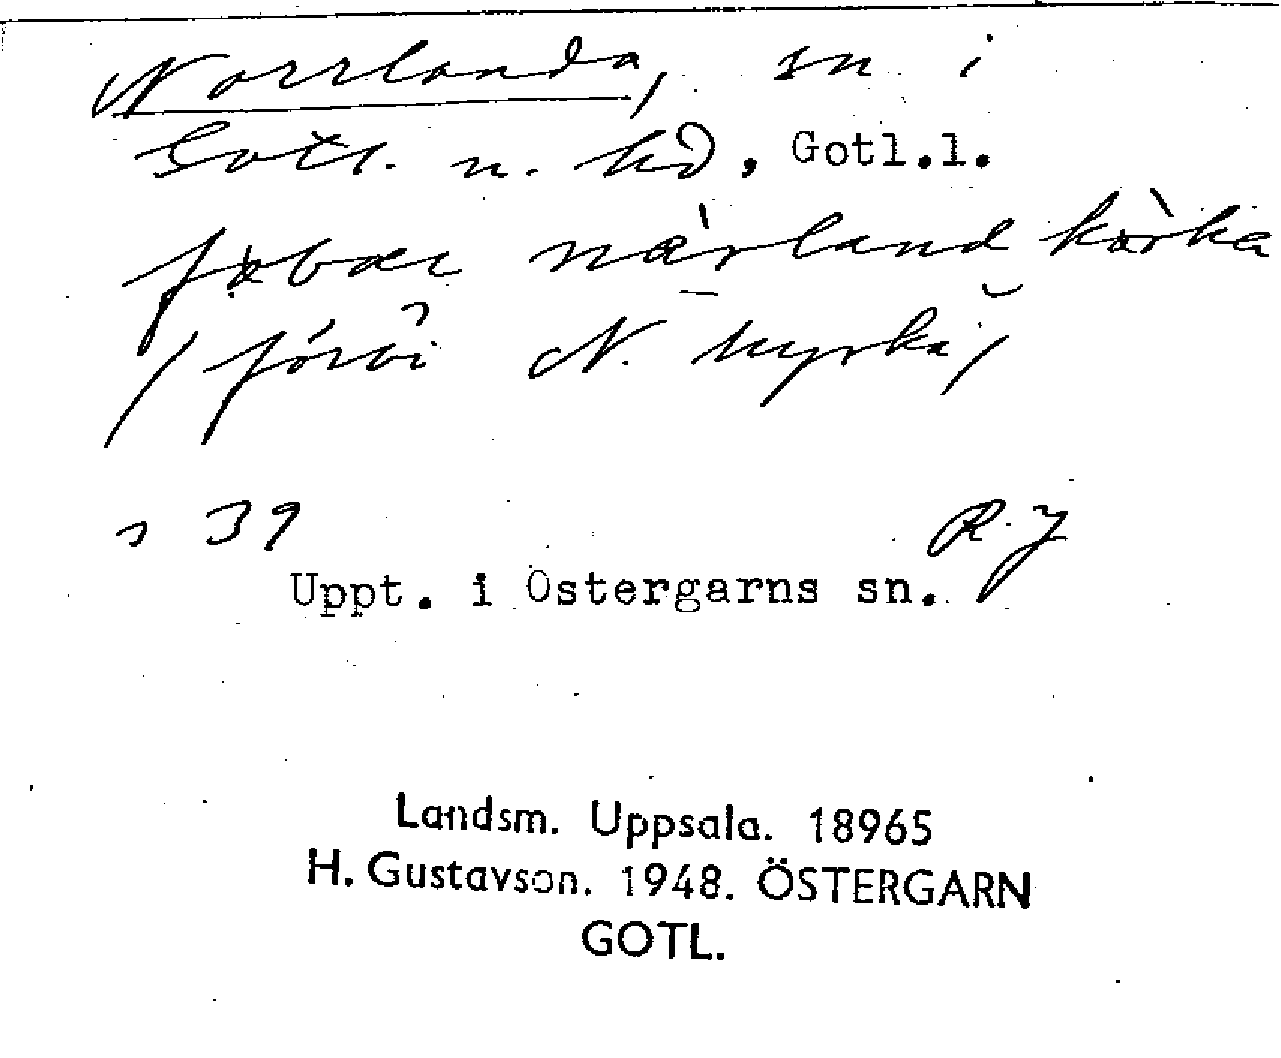 Norrlanda, sn i
Gotl. n. hd, Gotl.l.
nàrland
/förbi N. kyrka/
s 39 R.J
Uppt. i Östergarns sn.
Landsm. Uppsala. 18965
H. Gustavson. 1948. ÖSTERGARN
GOTL.